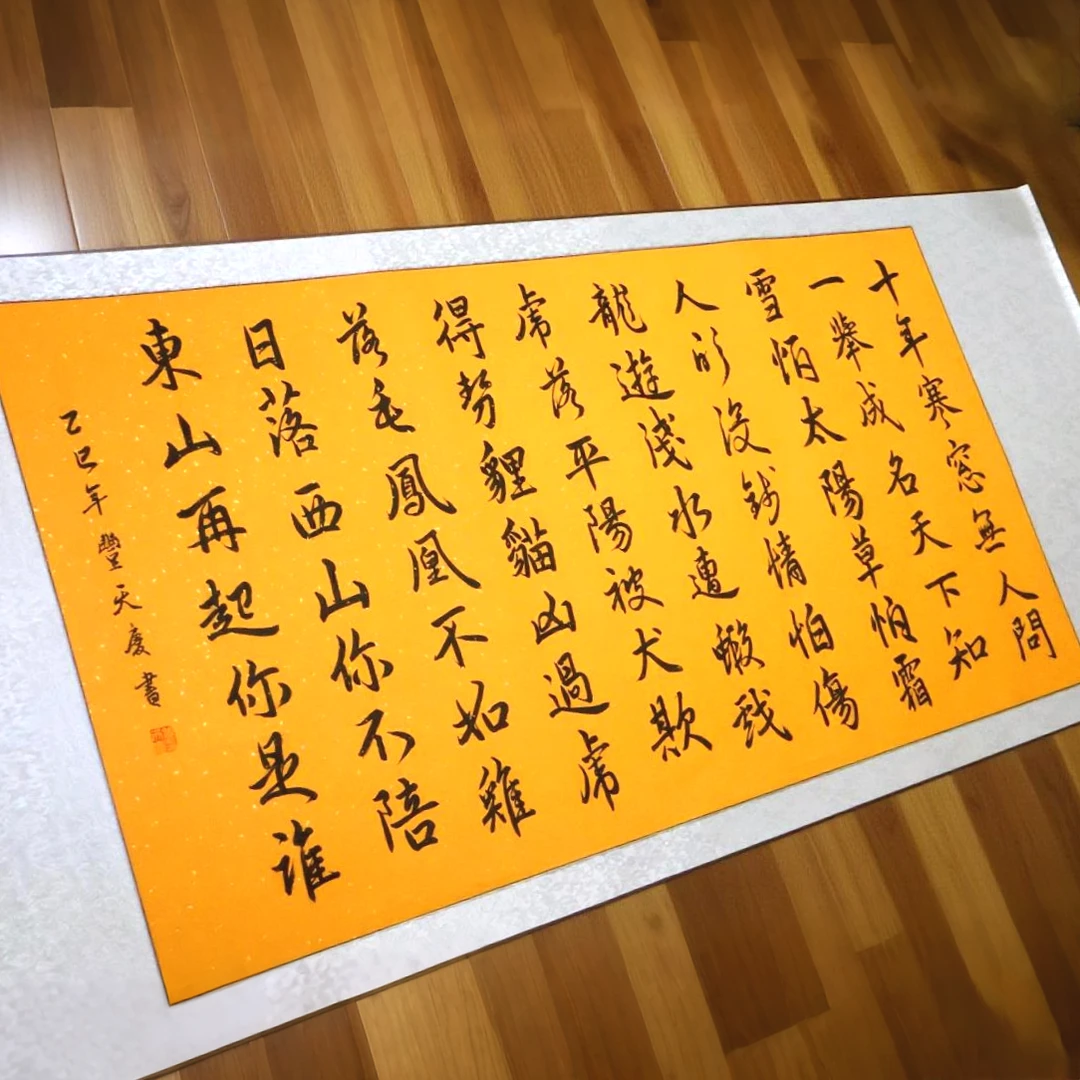 十年寒窓無人問
一舉成名天下知
雪怕太陽草怕霜
人的沒錢情怕傷
龍遊淺水遭蝦戲
虎落平陽被犬欺
得勢貍貓凶過虎
落毛鳳凰不如雞
日落西山你不陪
東山再起你是誰
乙巳年 豐天慶書